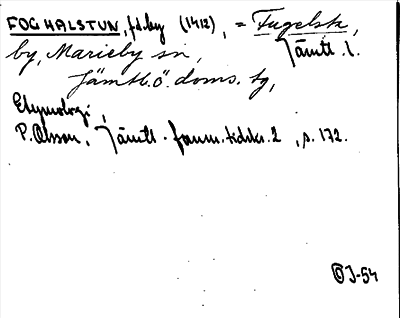 FOGHALSTUN, fd. by (1412), = Fugelsta,
by, Marieby sn, Jämtl. l.
Jämtl. ö. doms. tg,
Etymologi,
P. Olsson, Jämtl. fornm. tidskr. 2, s. 172.
OJ-54